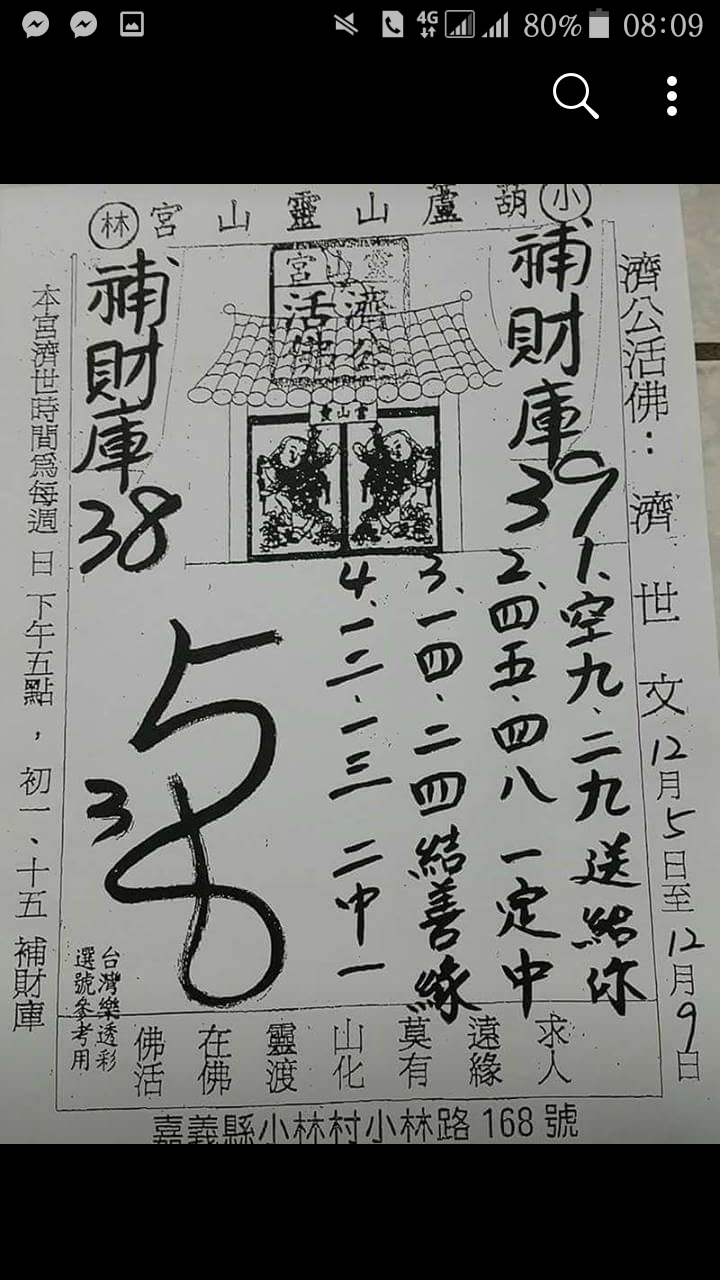 4G 80% 08:09
小 葫蘆山靈山宮 林
濟公活佛：濟世文 12月5日至12月9日
補財庫 39
靈山宮
濟公
活佛
靈山宮
補財庫 38
1、空九、二九 送給你
2、四五、四八 一定中
3、一四、二四 結善緣
4、一二、一三 二中一
3
台灣樂透彩
選號參考用
求人
遠緣
莫有
山化
靈渡
在佛
佛活
本宮濟世時間為每週日下午五點，初一、十五 補財庫
嘉義縣小林村小林路 168 號